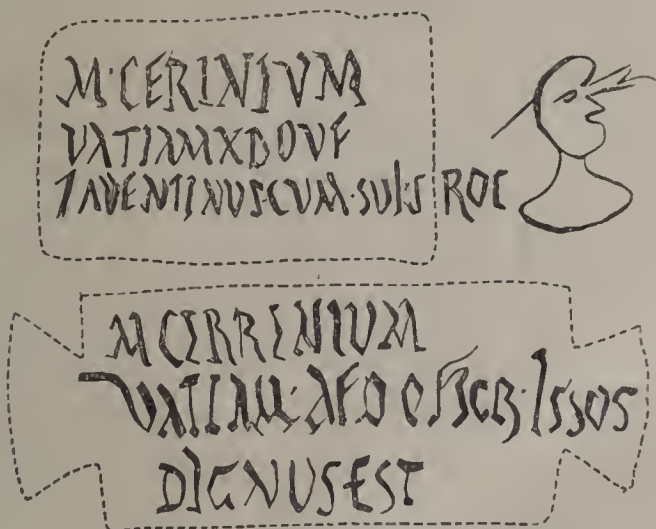 M·CERINIVM
VATIAMXDOVF
IAVENTINUS·CVM·SUIS ROC
M CERRENIUM
VATIAM·AED OF SCR·ISSOS
DIGNUS EST